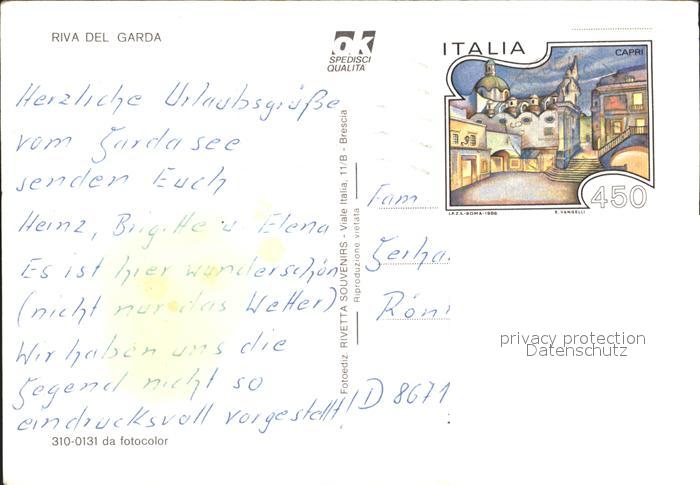 RIVA DEL GARDA
ak
SPEDISCI
QUALITA'
ITALIA
CAPRI
450
I.P.Z.S.-ROMA-1986
E. VANGELLI
Herzliche Urlaubsgrüße
vom Gardasee
senden Euch
Heinz, Brigitte u. Elena
Es ist hier wunderschön
(nicht nur das Wetter)
Wir haben uns die
Gegend nicht so
eindrucksvoll vorgestellt!
310-0131 da fotocolor
Fotoediz. RIVETTA SOUVENIRS - Viale Italia, 11/B - Brescia
Riproduzione vietata
Fam
Gerha
Röni
D 8671
privacy protection
Datenschutz